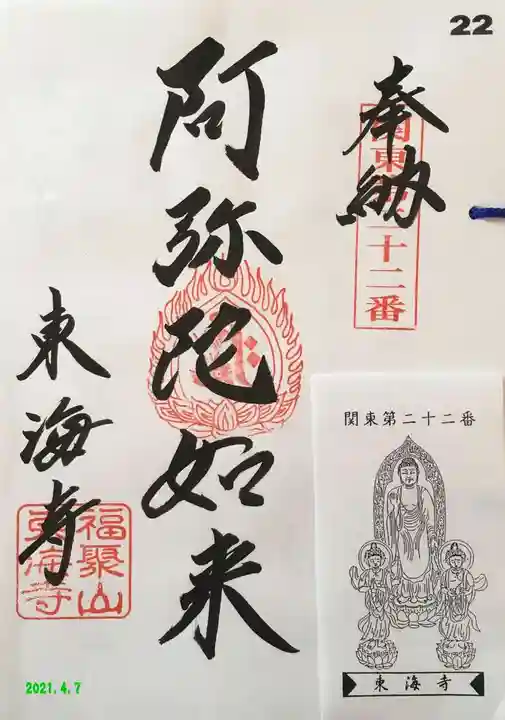 22
奉納
関東第二十二番
阿弥陀如来
東海寺
福聚山
東海寺
関東第二十二番
東海寺
2021.4.7